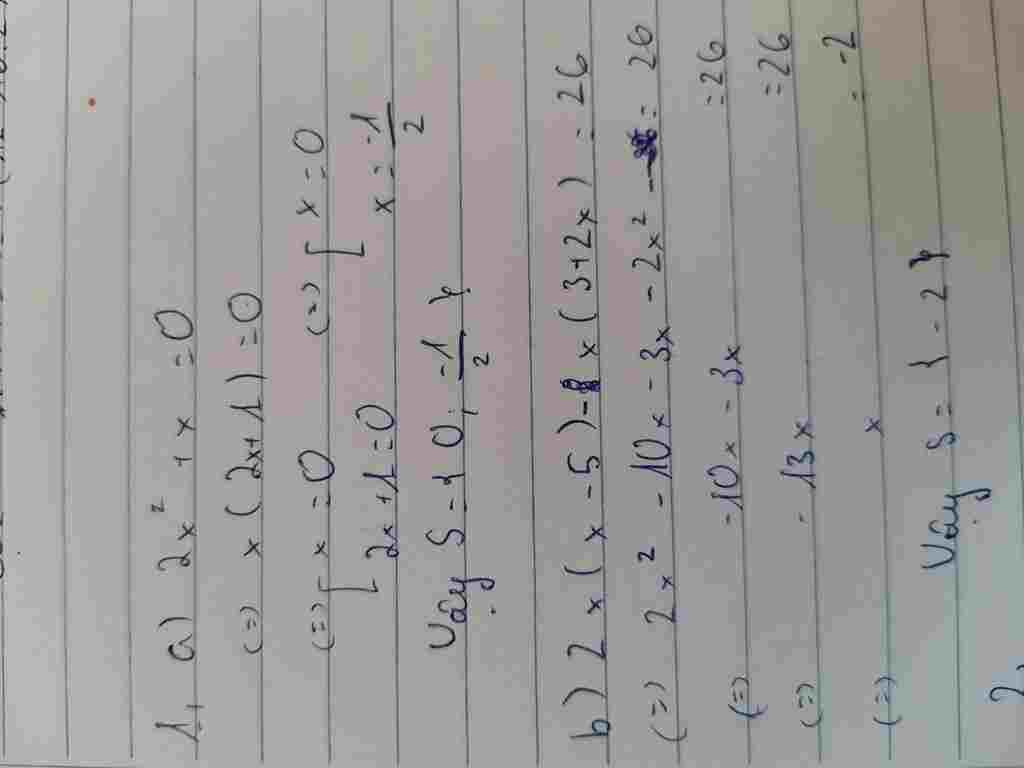 1, a) 2x² + x = 0
(=) x (2x+1) = 0
(=) [ x = 0 (=) [ x = 0
2x + 1 = 0 x = -1/2
Vậy S = { 0 ; -1/2 }
b) 2x ( x - 5 ) - x ( 3 + 2x ) = 26
(=) 2x² - 10x - 3x - 2x² = 26
(=) -10x - 3x = 26
(=) - 13x = 26
(=) x = -2
Vậy S = { - 2 }
2,